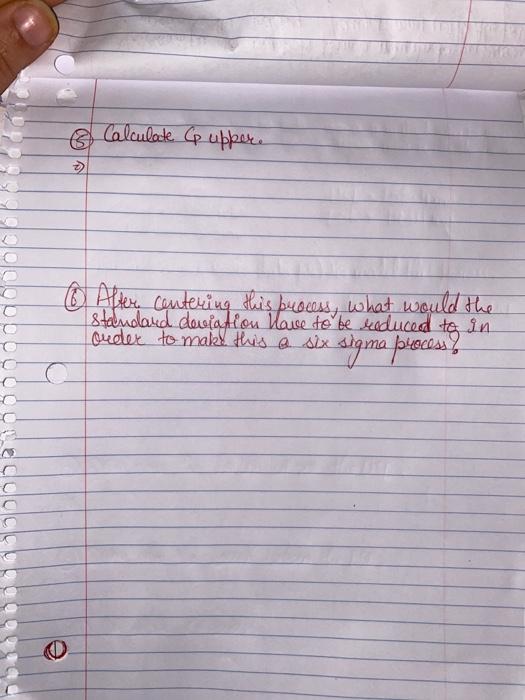 ⑤ Calculate Cp upper.
⑥ After centering this process, what would the
standard deviation have to be reduced to in
order to make this a six sigma process?